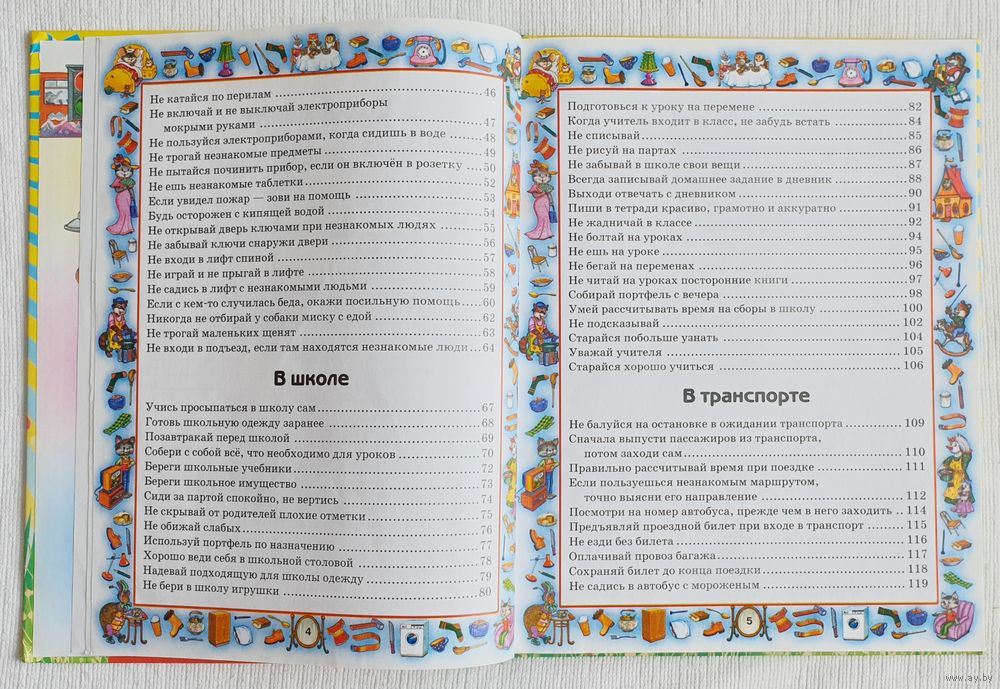 Не катайся по перилам ........ 46
Не включай и не выключай электроприборы
мокрыми руками ........ 47
Не пользуйся электроприборами, когда сидишь в воде ........ 48
Не трогай незнакомые предметы ........ 49
Не пытайся починить прибор, если он включён в розетку ........ 50
Не ешь незнакомые таблетки ........ 52
Если увидел пожар — зови на помощь ........ 53
Будь осторожен с кипящей водой ........ 54
Не открывай дверь ключами при незнакомых людях ........ 55
Не забывай ключи снаружи двери ........ 56
Не входи в лифт спиной ........ 57
Не играй и не прыгай в лифте ........ 58
Не садись в лифт с незнакомыми людьми ........ 59
Если с кем-то случилась беда, окажи посильную помощь ........ 60
Никогда не отбирай у собаки миску с едой ........ 62
Не трогай маленьких щенят ........ 63
Не входи в подъезд, если там находятся незнакомые люди ........ 64
В школе
Учись просыпаться в школу сам ........ 67
Готовь школьную одежду заранее ........ 68
Позавтракай перед школой ........ 69
Собери с собой всё, что необходимо для уроков ........ 70
Береги школьные учебники ........ 72
Береги школьное имущество ........ 73
Сиди за партой спокойно, не вертись ........ 74
Не скрывай от родителей плохие отметки ........ 75
Не обижай слабых ........ 76
Используй портфель по назначению ........ 77
Хорошо веди себя в школьной столовой ........ 78
Надевай подходящую для школы одежду ........ 79
Не бери в школу игрушки ........ 80
4
Подготовься к уроку на перемене ........ 82
Когда учитель входит в класс, не забудь встать ........ 84
Не списывай ........ 85
Не рисуй на партах ........ 86
Не забывай в школе свои вещи ........ 87
Всегда записывай домашнее задание в дневник ........ 88
Выходи отвечать с дневником ........ 90
Пиши в тетради красиво, грамотно и аккуратно ........ 91
Не жадничай в классе ........ 92
Не болтай на уроках ........ 94
Не ешь на уроке ........ 95
Не бегай на переменах ........ 96
Не читай на уроках посторонние книги ........ 97
Собирай портфель с вечера ........ 98
Умей рассчитывать время на сборы в школу ........ 100
Не подсказывай ........ 102
Старайся побольше узнать ........ 104
Уважай учителя ........ 105
Старайся хорошо учиться ........ 106
В транспорте
Не балуйся на остановке в ожидании транспорта ........ 109
Сначала выпусти пассажиров из транспорта,
потом заходи сам ........ 110
Правильно рассчитывай время при поездке ........ 111
Если пользуешься незнакомым маршрутом,
точно выясни его направление ........ 112
Посмотри на номер автобуса, прежде чем в него заходить ........ 114
Предъявляй проездной билет при входе в транспорт ........ 115
Не езди без билета ........ 116
Оплачивай провоз багажа ........ 117
Сохраняй билет до конца поездки ........ 118
Не садись в автобус с мороженым ........ 119
5
www.ay.by